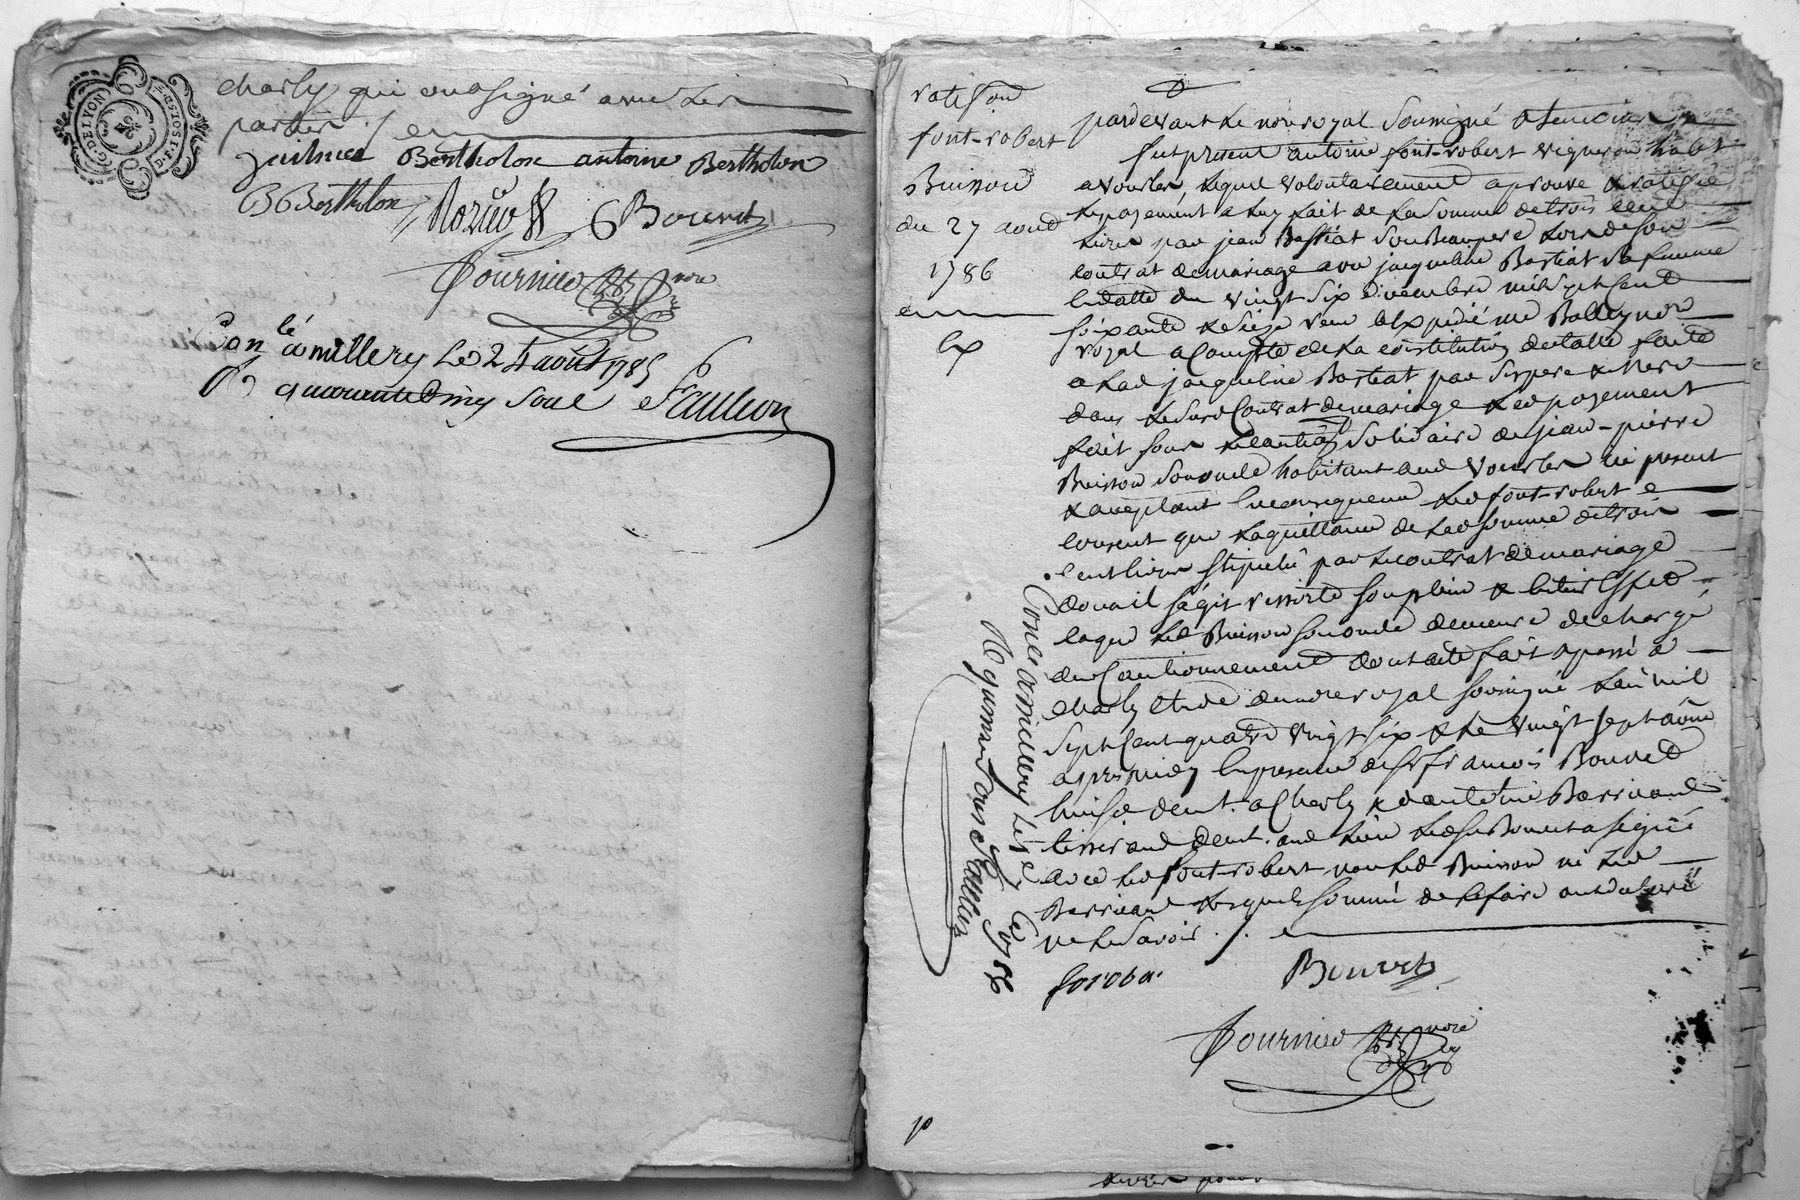 charly qui ont signé avec les
parties ./.
G. DE LYON
Bertholon antoine Bertholon
Bertholon Bouvet
Fournier nore
Con lé a millery le 24 août 1785
R quarante cinq sous Faulcon
ratif on
font-robert
Buisson
du 27 aoust
1786
Ex
pardevant le nore royal soussigné & temoins
fut present antoine font-robert vigneron habit
a vourles, lequel volontairement aprouve & ratifie
le payement a luy fait de la somme de trois cent
livres par jean Bastiat son Beaupere lors de son
contrat de mariage avec jacqueline Bastiat sa femme
en datte du vingt six novembre mil sept cent
soixante & seize reçu & expedié me Balley nore
royal a compte de la constitution dotalle faitte
a lad jacqueline Bastiat par ses pere & mere
dans led contrat de mariage & led payement
fait sous le cautiont solidaire de jean-pierre
Buisson son oncle habitant aud Vourles ici present
& acceptant en consequence led font-robert
consent que la quittance de lad somme de trois
cent livres stipulé par le contrat de mariage
dont il s'agit sorte son plein & entier effet &
& que led Buisson son oncle demeure dechargé
du Cautionnement dont acte fait & passé a
charly etude du nore royal soussigné l'an mil
sept cent quatre vingt six & le vingt sept aoust
apres midy en presence de sr francois Bouvet
huissier demt. a Charly & d'antoine Barriand
tisserand demt. aud lieu led sr Bouvet a signé
avec led font-robert non led Buisson ni led
Barriand lesquels sommé de le faire ont declaré
ne le savoir ./.
foroba Bouvet
Fournier nore
Con lé a millery le 7 1786
R quinze sous Faulcon